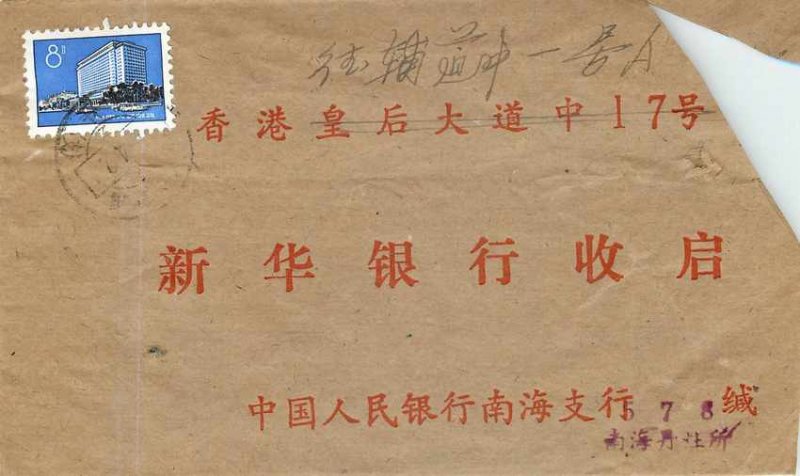 8分
德辅道中一号A
香港皇后大道中17号
新华银行收启
中国人民银行南海支行 缄
6 7 8
南海丹灶所